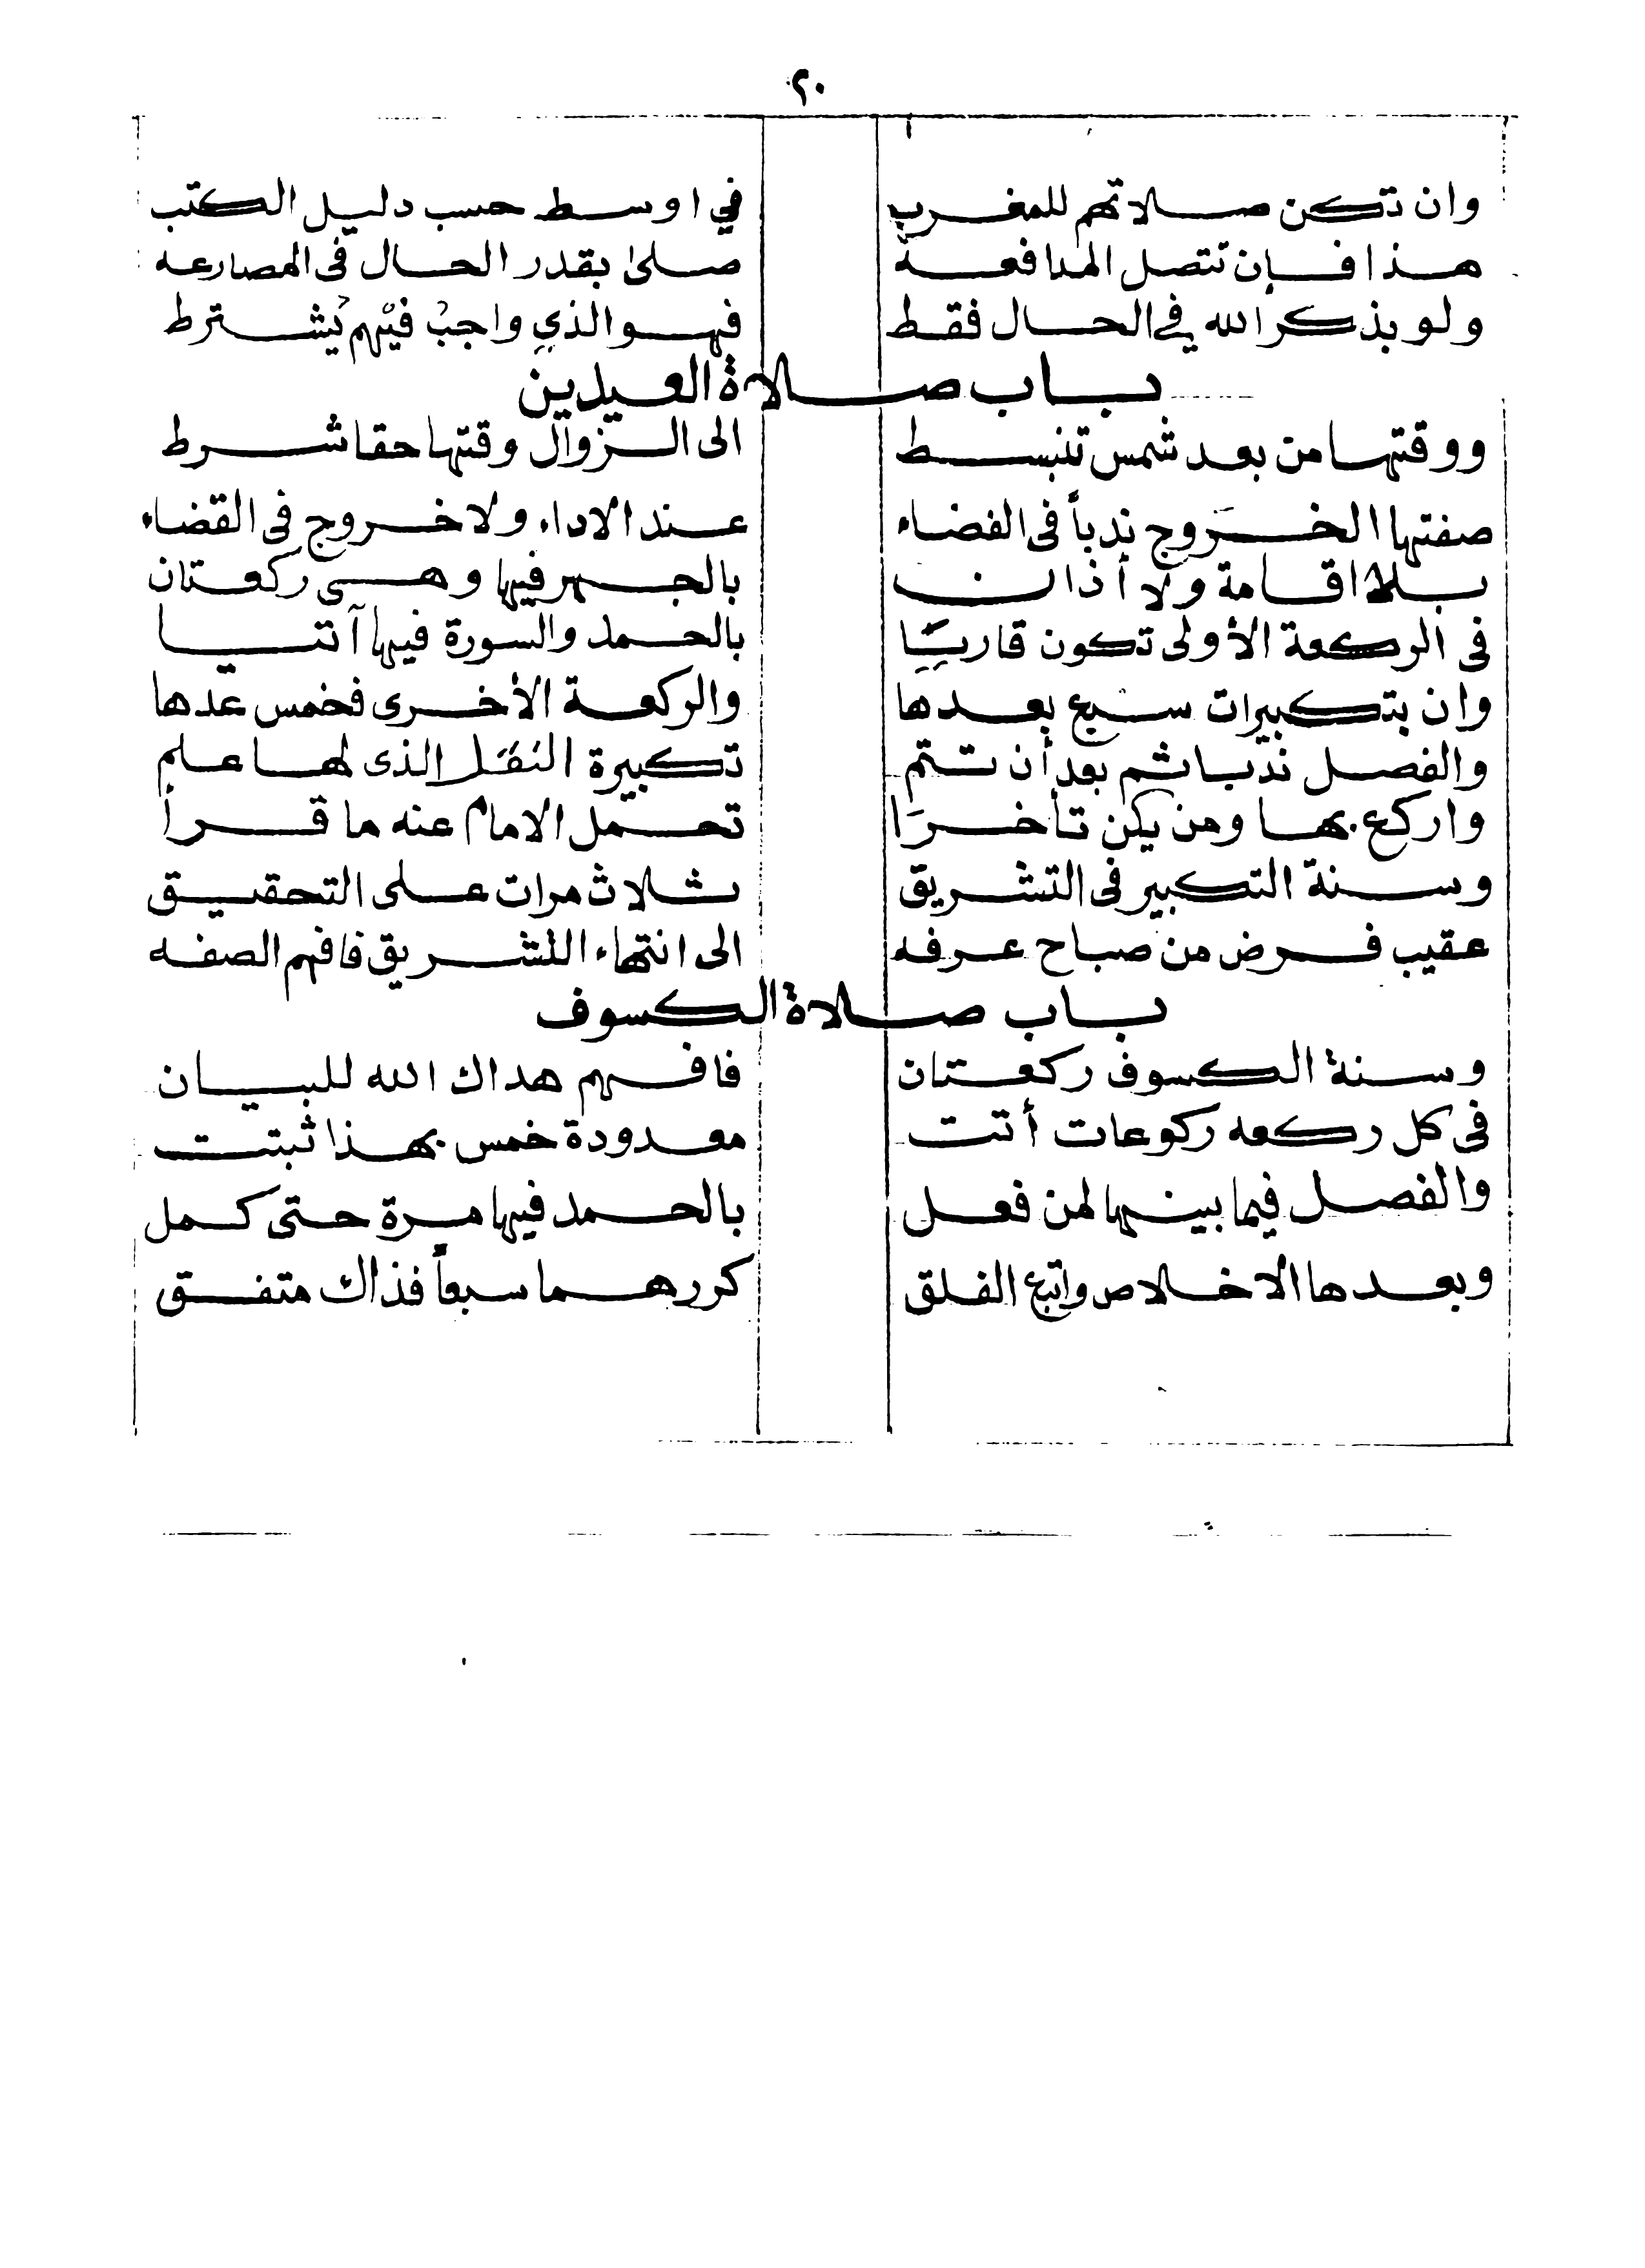 ٢٠
وان تكن صلاتهم للمغرب في اوسط حسب دليل الكتب
هذا فإن تتصل المدافعة صلىٰ بقدر الحال فى المصارعه
ولو بذكر الله في الحال فقط فهو الذي واجبْ فيْهم يُشترط
باب صلاة العيدين
ووقتها من بعد شمس تنبسط الى الزوال وقتها حقا شرط
صفتها الخَروج ندباً فى الفضاء عند الاداء ولا خروج فى القضاء
بلا اقامة ولا أذان بالجهر فيها وهى ركعتان
فى الركعة الأولى تكون قاريًا بالحمد والسورة فيها آتيا
وان بتكبيرات سبع بعدها والركعة الأخرى فخمس عدها
والفصل ندبا ثم بعد أن تتم تكبيرة النَقَل الذى لها علم
واركع بها ومن يكن تأخرَا تحمل الامام عنه ما قرأ
وسنة التكبير فى التشريق ثلاث مرات على التحقيق
عقيب فرض من صباح عرفه الى انتهاء التشريق فافهم الصفه
باب صلاة الكسوف
وسنة الكسوف ركعتان فافهم هداك الله للبيان
فى كل ركعه ركوعات أتت معدودة خمس بهذا ثبتت
والفصل فيما بينها لمن فعل بالحمد فيها مرة حتى كمل
وبعدها الاخلاص واتبع الفلق كررهما سبعاً فذاك متفق